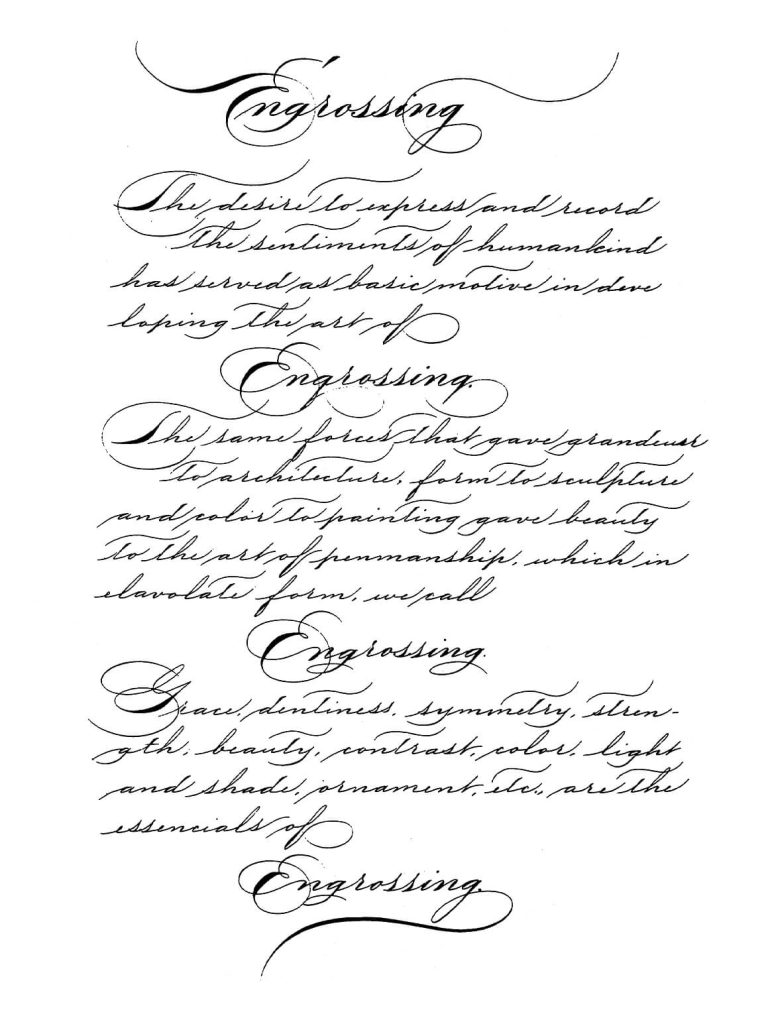 Engrossing
The desire to express and record
the sentiments of humankind
has served as basic motive in deve
loping the art of
Engrossing.
The same forces that gave grandeur
to architecture, form to sculpture
and color to painting gave beauty
to the art of penmanship, which in
elavolate form, we call
Engrossing.
Grace, dentiness, symmetry, stren-
gth, beauty, contrast, color, light
and shade, ornament, etc., are the
essencials of
Engrossing.